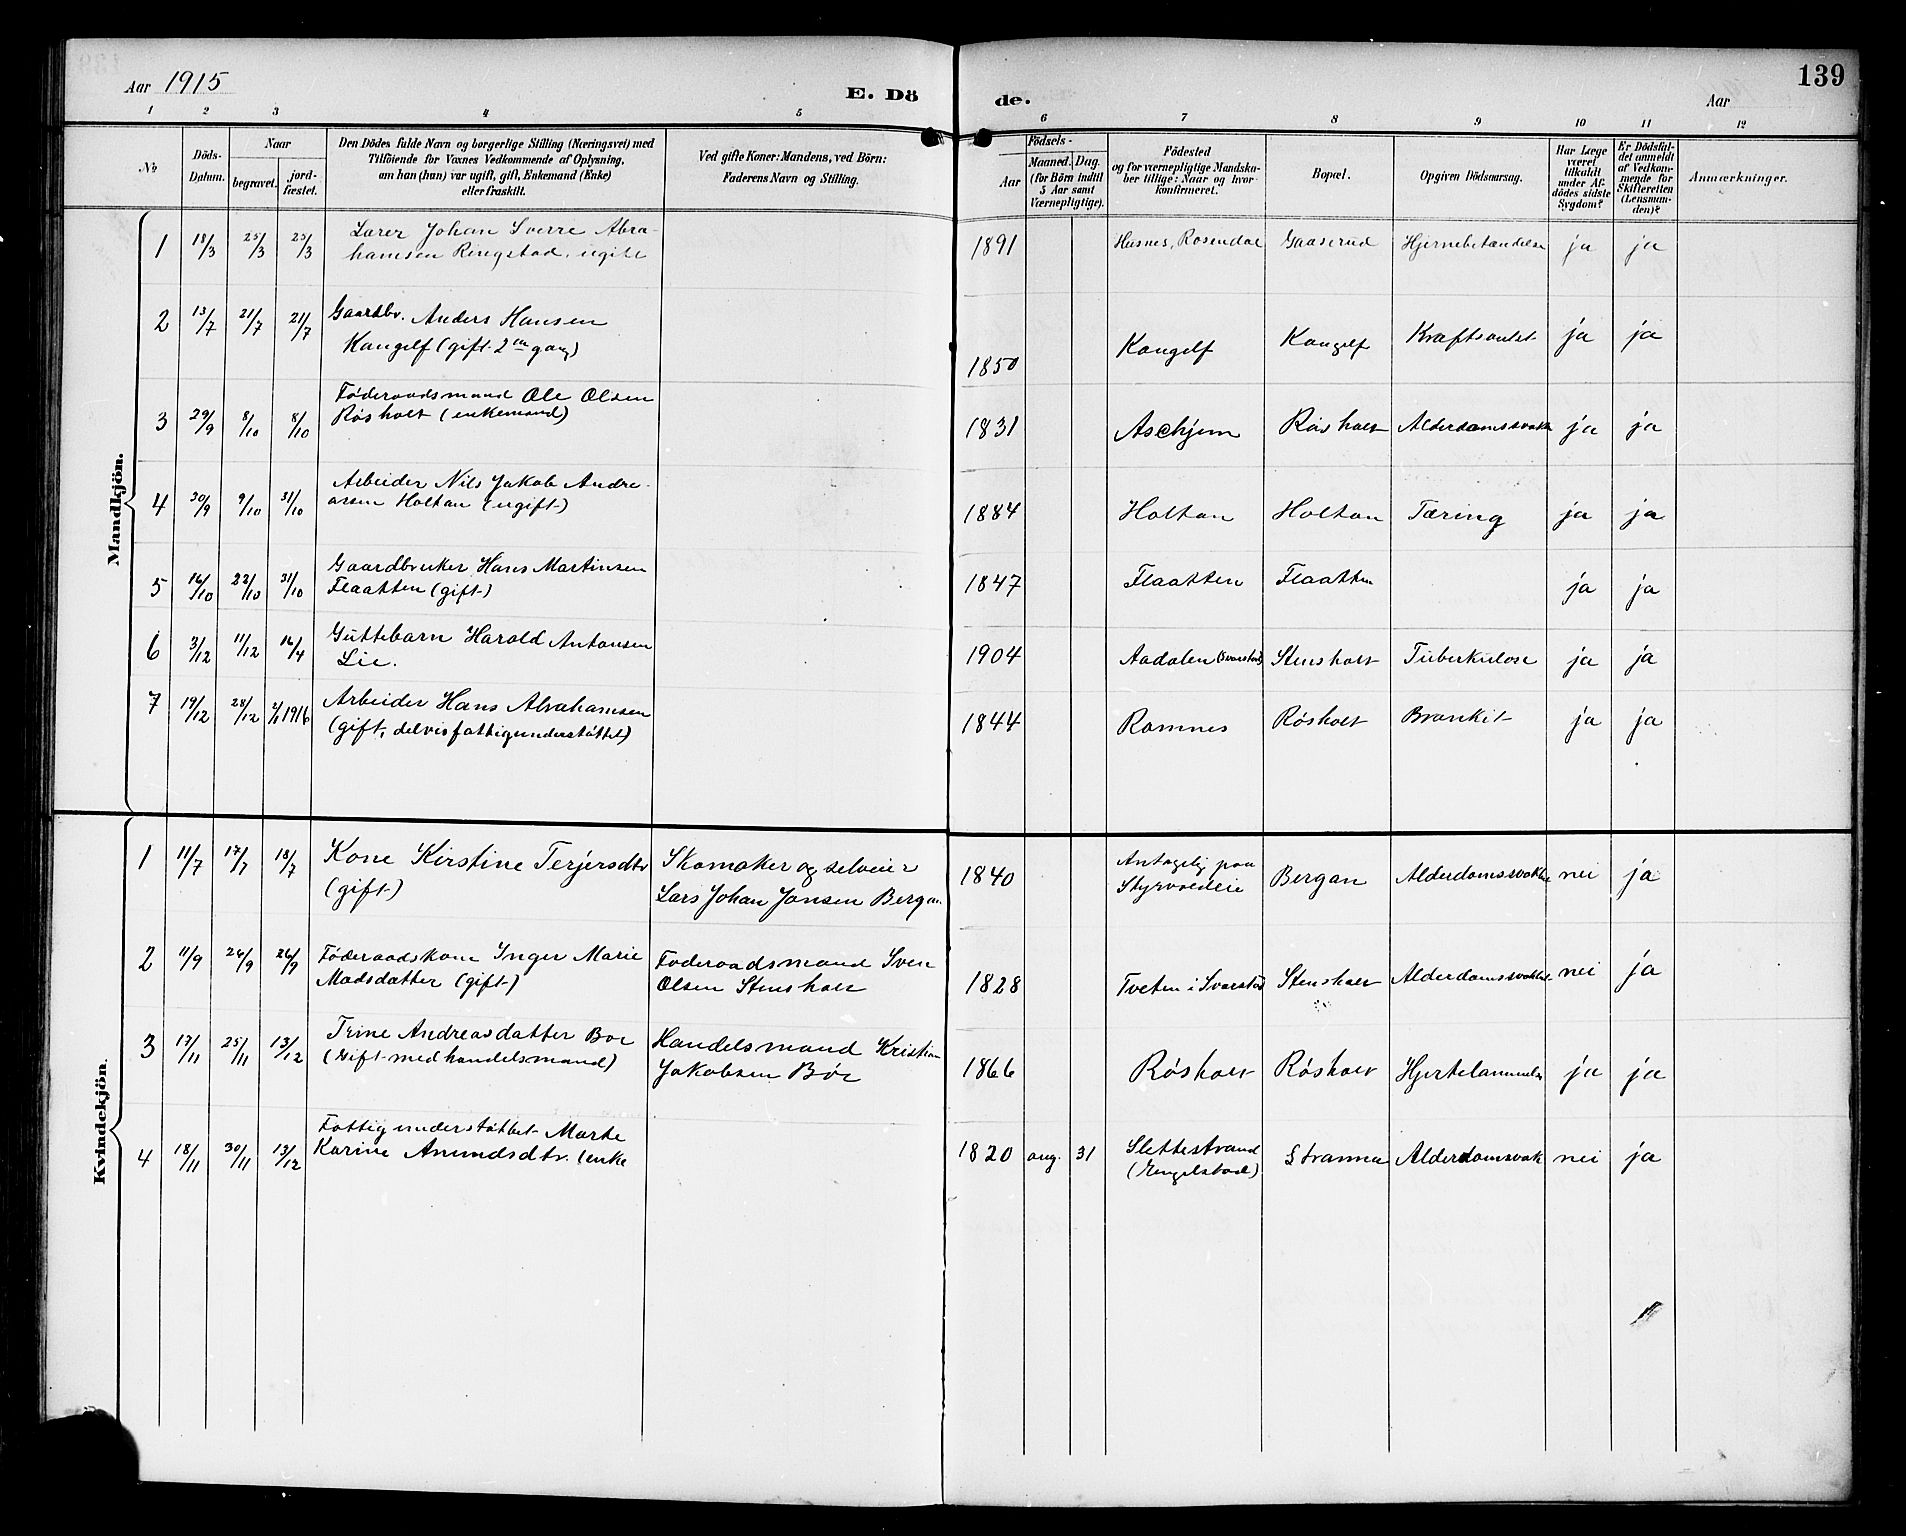 Aar 1915
E. Dö
de.
Aar
139
1 2 3 4 5 6 7 8 9 10 11 12
No
Döds-
Datum.
Naar
begravet.
jord-
fæstet.
Den Dödes fulde Navn og borgerlige Stilling (Næringsvei) med
Tilföiende for Voxnes Vedkommende af Oplysning,
om han (hun) var ugift, gift, Enkemand (Enke)
eller fraskilt.
Ved gifte Koner: Mandens, ved Börn:
Faderens Navn og Stilling.
Födsels-
Aar
Maaned. Dag.
(for Börn indtil
5 Aar samt
Værnepligtige).
Födested
og for værnepligtige Mandska-
ber tillige: Naar og hvor
konfirmeret.
Bopæl.
Opgiven Dödsaarsag.
Har Læge
været
tilkaldt
under Af-
dödes sidste
Sygdom?
Er Dödsfal-
det anmeldt
af Vedkom-
mende for
Skifteretten
(Lensman-
den)?
Anmærkninger.
Mandkjön.
1 18/3 25/3 25/3 Lærer Johan Sverre Abra-
hamsen Ringstad, ugift
1891 Husnes, Rosendal Gaaserud Hjernebetændelse ja ja
2 13/7 21/7 21/7 Gaardbr. Anders Hansen
Kongelf (gift 2en gang)
1850 Kongelf Kongelf Kraftsvulst ja ja
3 29/9 8/10 8/10 Føderaadsmand Ole Olsen
Røsholt (enkemand)
1831 Aschjem Røsholt Alderdomssvak ja ja
4 30/9 9/10 31/10 Arbeider Nils Jakob Andre-
assen Holtan (ugift)
1884 Holtan Holtan Tæring ja ja
5 16/10 22/10 31/10 Gaardbruker Hans Martinsen
Flaatten (gift)
1847 Flaatten Flaatten ja ja
6 3/12 11/12 16/4 Guttebarn Harald Antonsen
Lie.
1904 Aadalen (Svarstad) Stensholt Tuberkulose ja ja
7 19/12 28/12 2/1 1916 Arbeider Hans Abrahamsen
(gift, delvis fattigunderstøttet)
1844 Ramnes Røsholt Bronkit ja ja
Kvindekjön.
1 11/7 17/7 18/7 Kone Kirstine Terjersdtr
(gift)
Skomaker og selveier
Lars Johan Jansen Bergan
1840 Antagelig paa
Styrvoldeie
Bergan Alderdomssvakhet nei ja
2 11/9 26/9 26/9 Føderaadskone Inger Marie
Madsdatter (gift)
Føderaadsmand Sven
Olsen Stensholt
1828 Tveten i Svarstad Stensholt Alderdomssvakhet nei ja
3 17/11 25/11 13/12 Trine Andreasdatter Boe
(Gift med handelsmand)
Handelsmand Kristian
Jakobsen Bøe
1866 Røsholt Røsholt Hjertelammelse ja ja
4 18/11 30/11 13/12 Fattigunderstøttet Marte
Karine Amundsdtr. (enke
1820 aug. 31 Slettestrand
(Engelstad)
Stranna Alderdomsvak nei ja